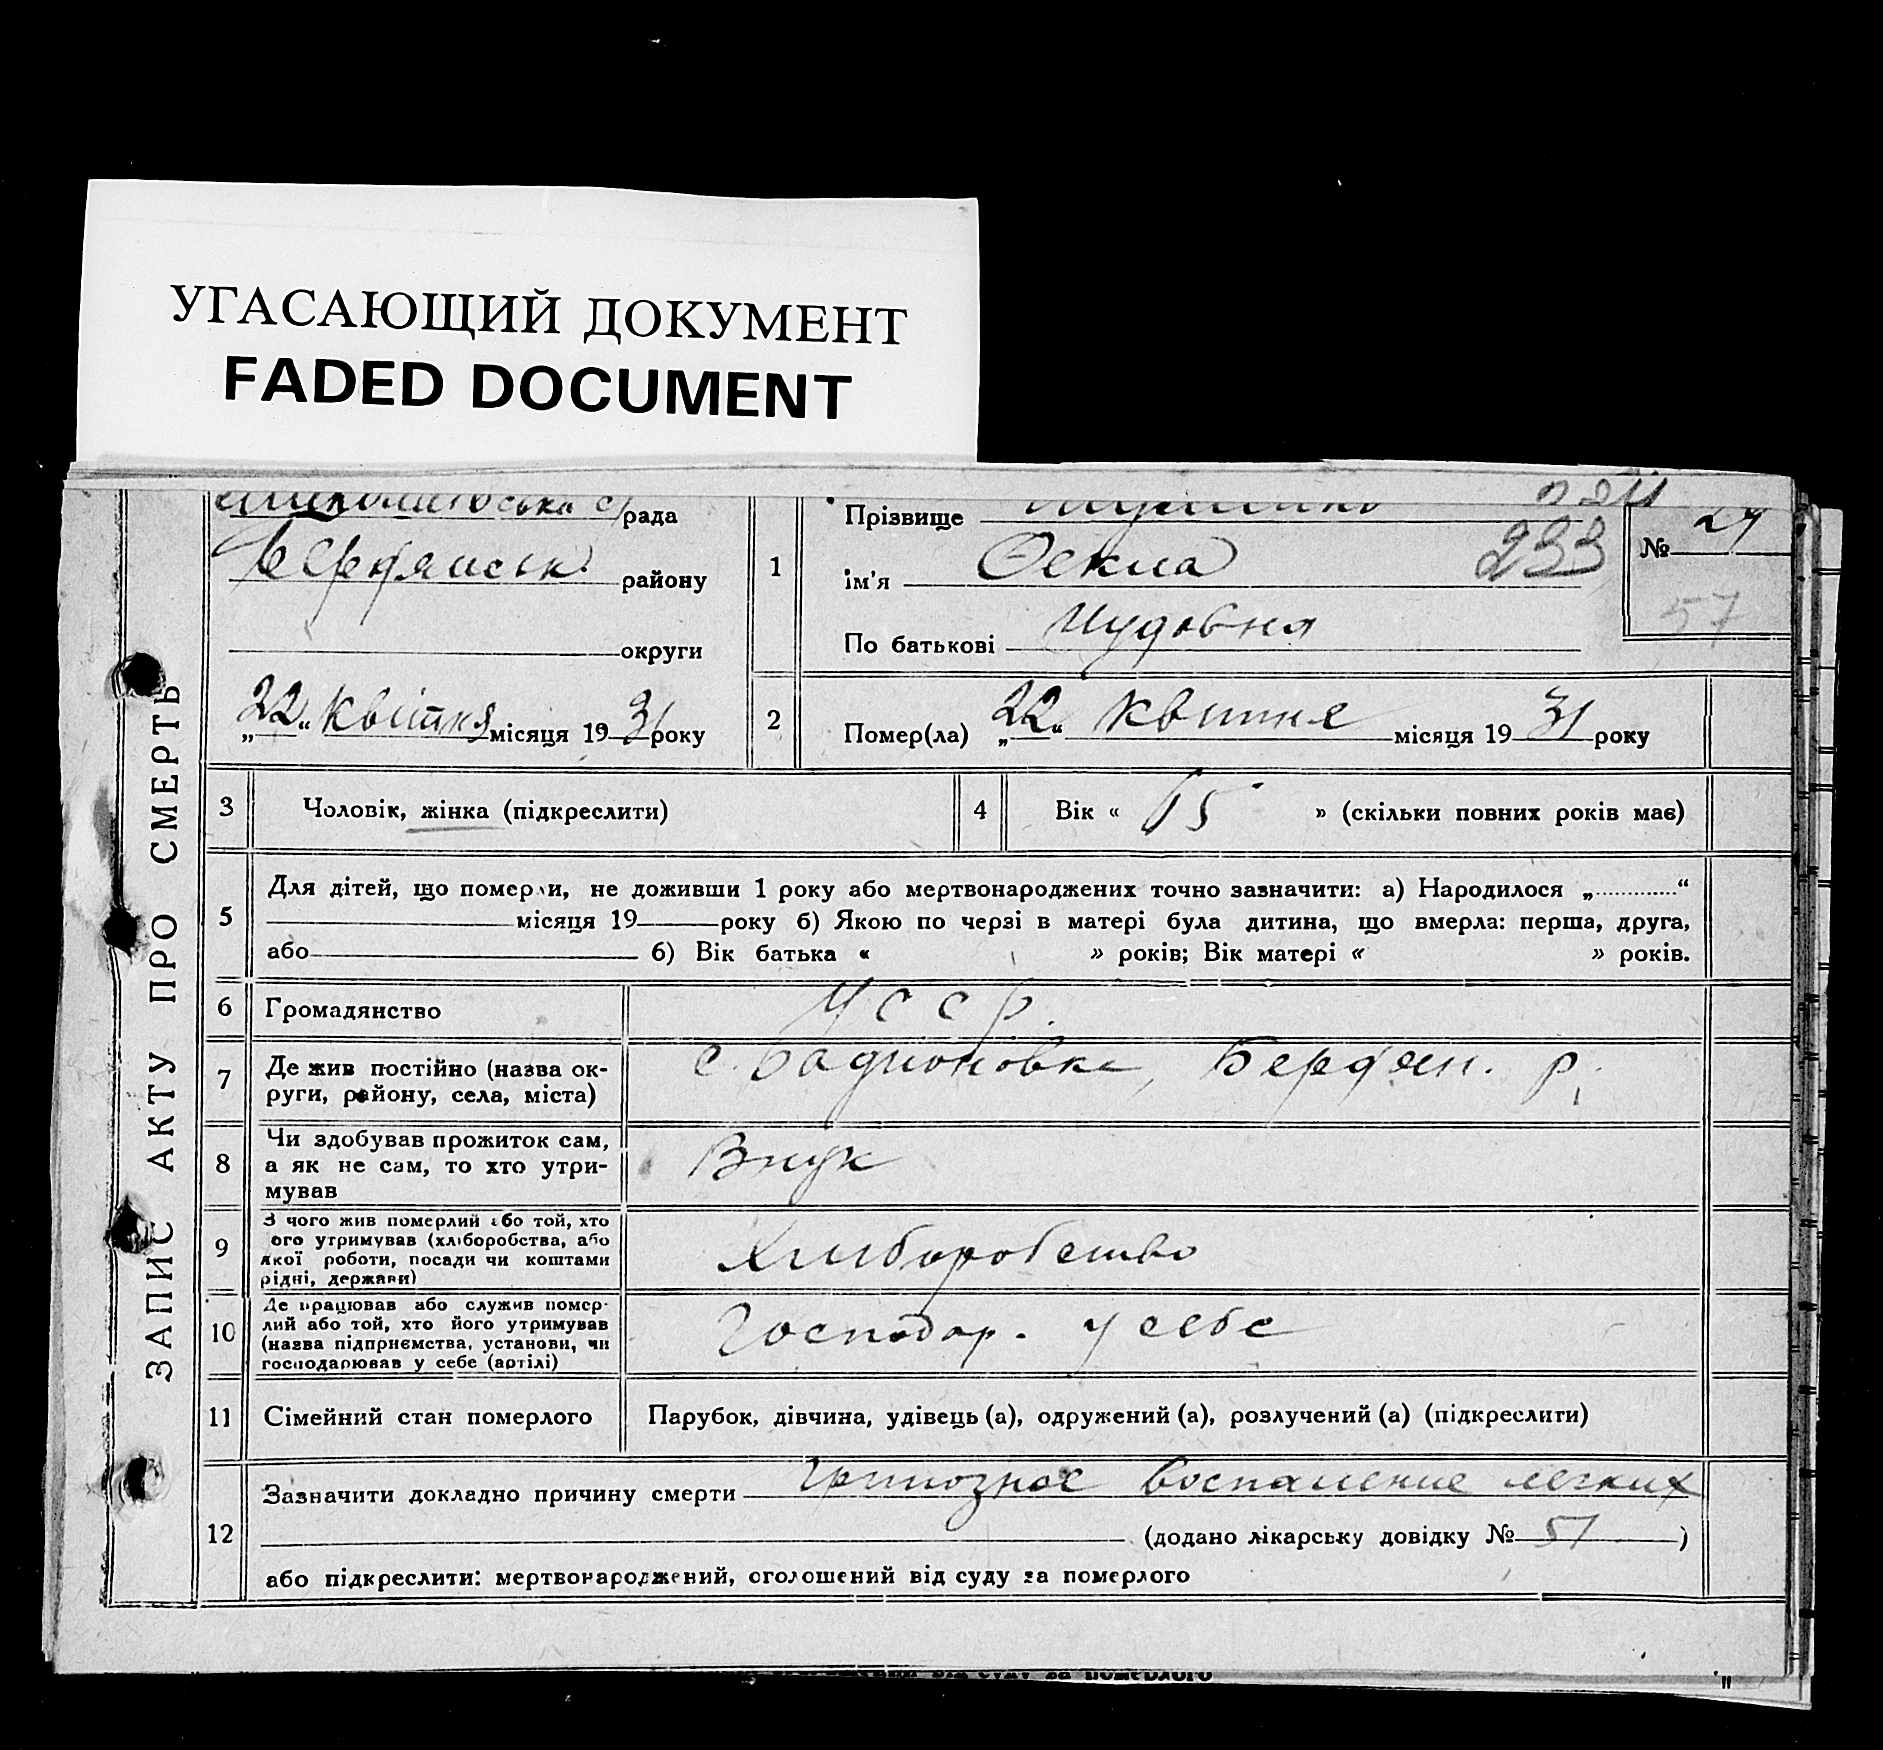 УГАСАЮЩИЙ ДОКУМЕНТ
FADED DOCUMENT
ЗАПИС АКТУ ПРО СМЕРТЬ
рада
району
округи
„22“ квітня місяця 1931 року
1
Прізвище
ім'я Фекла 233
По батькові
№ 24
57
2
Помер(ла) „22“ квітня місяця 1931 року
3
Чоловік, жінка (підкреслити)
4
Вік « 65 » (скільки повних років має)
5
Для дітей, що померли, не доживши 1 року або мертвонароджених точно зазначити: а) Народилося „ “
місяця 19 року б) Якою по черзі в матері була дитина, що вмерла: перша, друга,
або б) Вік батька « » років; Вік матері « » років.
6
Громадянство
УССР.
7
Де жив постійно (назва ок-
руги, району, села, міста)
с. Бердян. р.
8
Чи здобував прожиток сам,
а як не сам, то хто утри-
мував
Внук
9
З чого жив померлий або той, хто
ого утримував (хліборобства, або
якої роботи, посади чи коштами
рідні, держави)
Хлиборобство
10
Де працював або служив помер-
лий або той, хто його утримував
(назва підприємства, установи, чи
господарював у себе (артілі)
Господар. у себе
11
Сімейний стан померлого
Парубок, дівчина, удівець (а), одружений (а), розлучений (а) (підкреслити)
12
Зазначити докладно причину смерти воспаление легких
(додано лікарську довідку № 51 )
або підкреслити: мертвонароджений, оголошений від суду за померлого